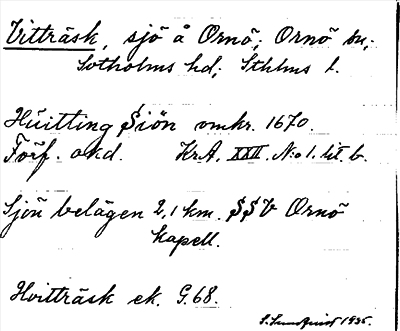 Vitträsk, sjö å Ornö; Ornö sn;
Sotholms hd; Sthlms l.
Huitting Siön omkr. 1670.
Förf. okd. Kr.A. XXII. N:o 1. lit. b.
Sjön belägen 2,1 km. SSV Ornö
kapell.
Hvitträsk ek. G.68.
S. Sundquist 1935.